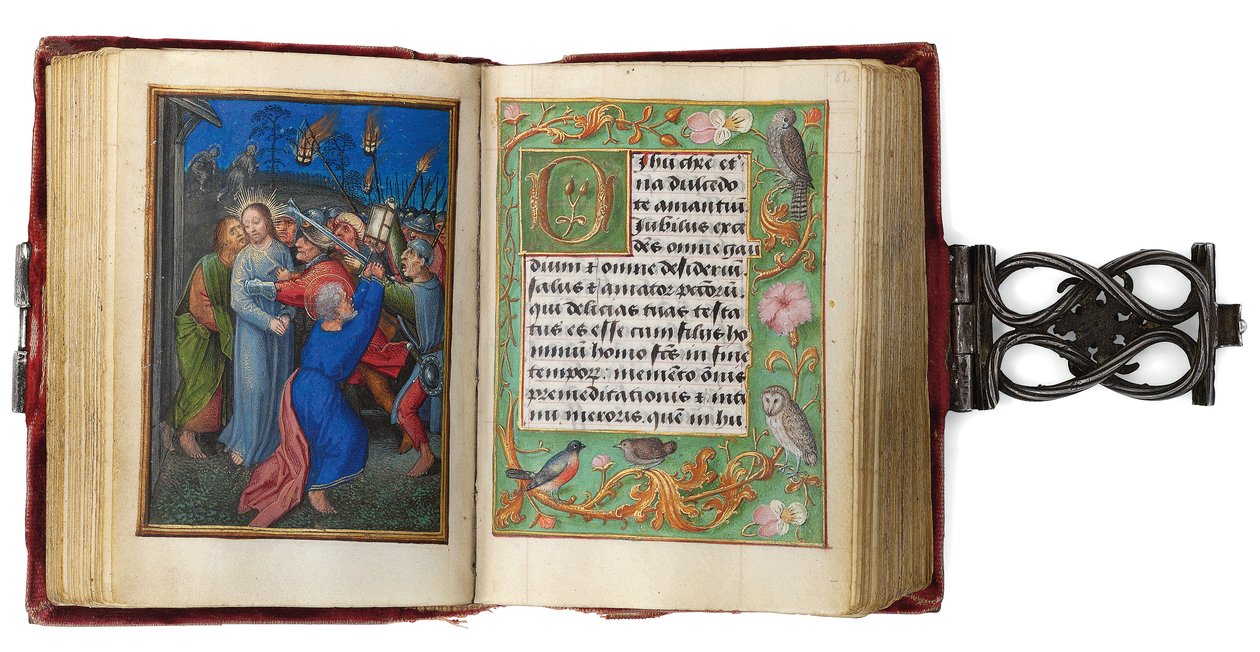 O Jhū xp̄e et̕
na dulcedo
te amantiū
Jubilus exce
dēs omne gau
dium ⁊ omne desideriū.
salus ⁊ amator pctōrū.
qui delicias tuas testa
tus es esse cum filiis ho
minū homo fc̄s in fine
temporꝝ. memēto ōnis
premeditationis ⁊ inti
mi meroris. quē in hu